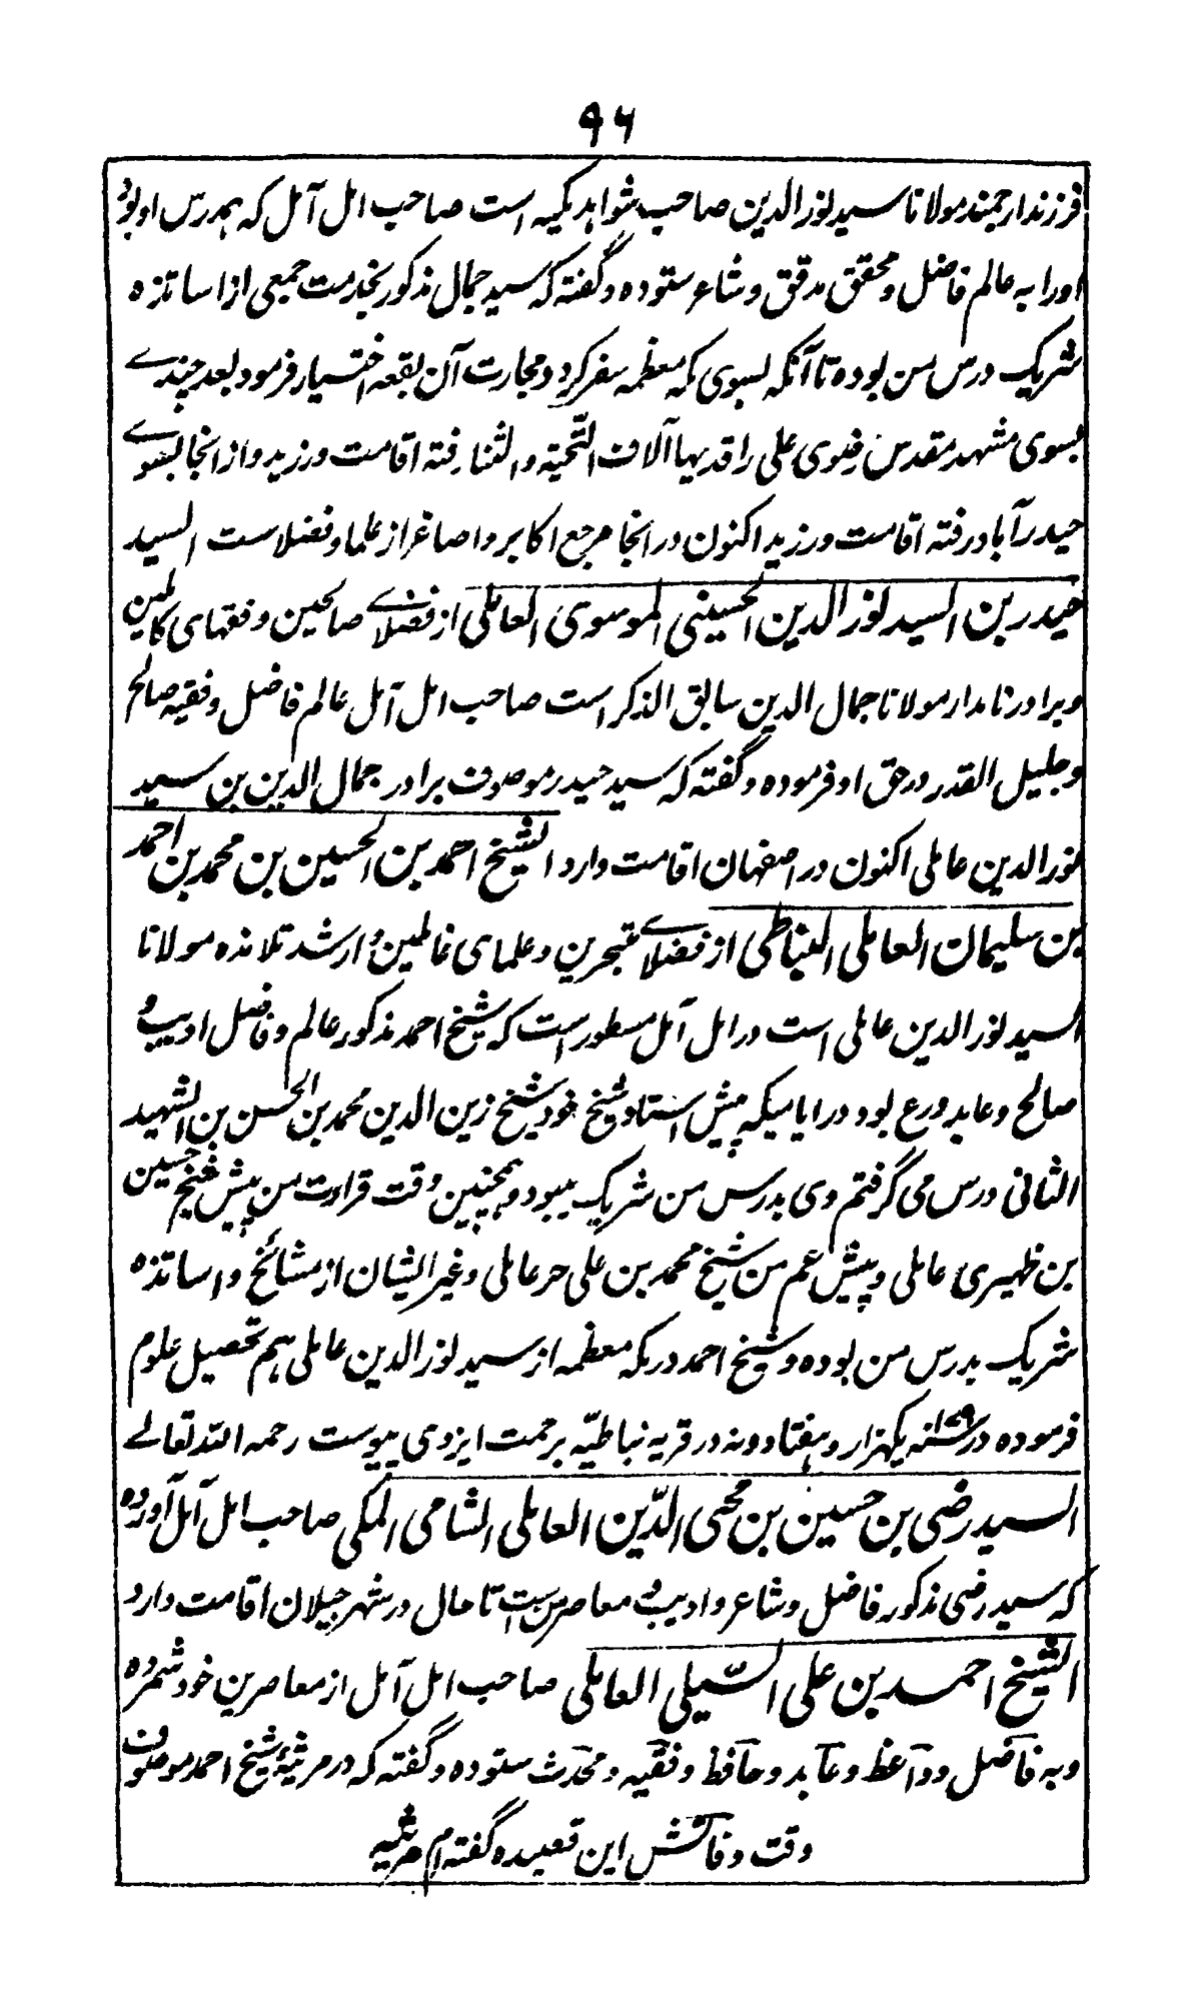 ۹۶
فرزند ارجمند مولانا سید نور الدین صاحب شواهد مکیه است صاحب امل آمل که همدرس او بود
اورا به عالم فاضل و محقق مدقق و شاعر ستوده و گفته که سید جمال مذکور بخدمت جمعی از اساتذه
شریک درس من بوده تا آنکه بسوی مکه معظمه سفر کرد و مجارت آن بقعه اختیار فرمود بعد چندے
بسوی مشهد مقدس رضوی علی راقدیها آلاف التحیّة و الثنا رفته اقامت ورزید و از آنجا بسوے
حیدرآباد رفته اقامت ورزید اکنون در آنجا مرجع اکابر و اصاغر از علما و فضلاست السید
حیدر بن السید نور الدین الحسینی الموسوی العاملی از فضلاے صالحین و فقهای کاملین
و برادر نامدار مولانا جمال الدین سابق الذکر است صاحب امل آمل عالم فاضل و فقیه صالح
و جلیل القدر در حق او فرموده و گفته که سید حیدر موصوف برادر جمال الدین بن سید
نور الدین عاملی اکنون در اصفهان اقامت دارد الشیخ احمد بن الحسین بن محمد بن احمد
بن سلیمان العاملی النباطی از فضلاے متبحرین و علمای عاملین و ارشد تلامذه مولانا
السید نور الدین عاملی است در امل آمل مسطور است که شیخ احمد مذکور عالم و فاضل ادیب و
صالح و عابد ورع بود در ایامیکه پیش استاد شیخ خود شیخ زین الدین محمد بن الحسن بن الشهید
الثانی درس می گرفتم وی بدرس من شریک میبود و همچنین وقت قراءت من پیش شیخ حسین
بن ظهیری عاملی و پیش عم من شیخ محمد بن علی حر عاملی و غیر ایشان از مشائخ و اساتذه
شریک بدرس من بوده و شیخ احمد در مکه معظمه از سید نور الدین عاملی هم تحصیل علوم
فرموده در سنه ۱۰۷۹ یکهزار و هفتاد و نه در قریه نباطیّه برحمت ایزدی پیوست رحمه الله تعالے
السید رضی بن حسین بن محی الدّین العاملی الشامی المکی صاحب امل آمل آورده
که سید رضی مذکور فاضل و شاعر و ادیب و معاصر من ست تا حال در شهر جیلان اقامت دارد
الشیخ احمد بن علی السّیلی العاملی صاحب امل آمل از معاصرین خود شمرده
و به فاضل و واعظ و عابد و حافظ و فقیه و محدث ستوده و گفته که در مرثیهٔ شیخ احمد موصوف
وقت وفاتش این قصیده گفته ام مرثیه